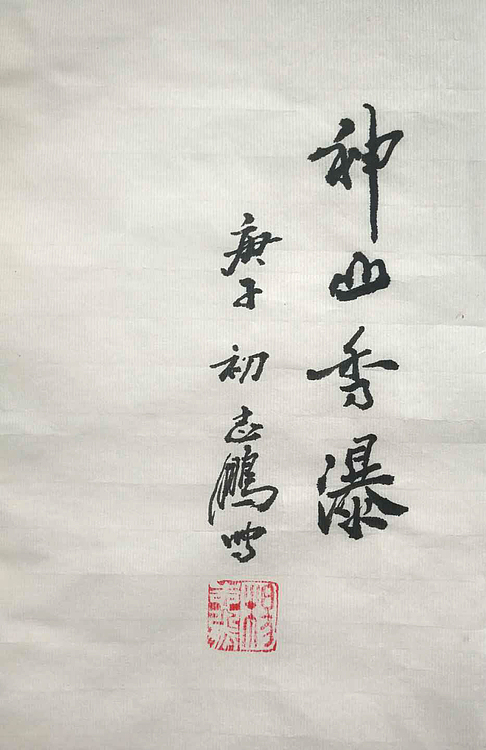 神山秀瀑
庚子初志鹏